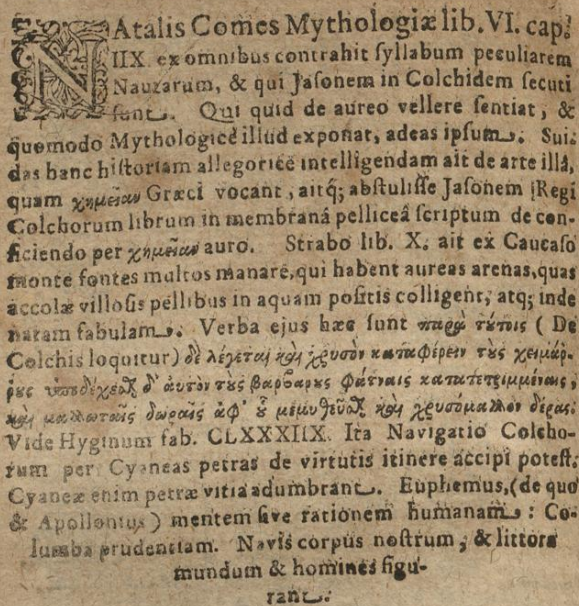 NAtalis Comes Mythologiæ lib. VI. cap.
IIX. ex omnibus contrahit syllabum peculiarem
Nautarum, & qui Jasonem in Colchidem secuti
sunt. Qui quid de aureo vellere sentiat, &
quomodo Mythologicè illud exponat, adeas ipsum. Sui-
das hanc historiam allegoricè intelligendam ait de arte illâ,
quam χημείαν Græci vocant, aitq; abstulisse Jasonem Regi
Colchorum librum in membranâ pelliceâ scriptum de con-
ficiendo per χημείαν auro. Strabo lib. X. ait ex Caucaso
monte fontes multos manare, qui habent aureas arenas, quas
accolæ villosis pellibus in aquam positis colligent, atq; inde
natam fabulam. Verba ejus hæc sunt παρὰ τύτοις ( De
Colchis loquitur) δὲ λέγεται καὶ χρυσὸν καταφέρειν τὺς χειμάρ-
ρυς ὑποδέχεσθ δ' αὐτὸν τὺς βαρβαρυς φάτναις κατατετριμμέναις,
καὶ μαλλωταῖς δωραῖς ἀφ' ὗ μεμυθεῦσθ καὶ χρυσόμαλλον δέρας.
Vide Hyginum fab. CLXXXIIX. Ita Navigatio Colcho-
rum per Cyaneas petras de virtutis itinere accipi potest.
Cyaneæ enim petræ vitia adumbrant. Euphemus, (de quo
& Apollonius) mentem sive rationem humanam: Co-
lumba prudentiam. Navis corpus nostrum, & littora
mundum & homines figu-
rant.